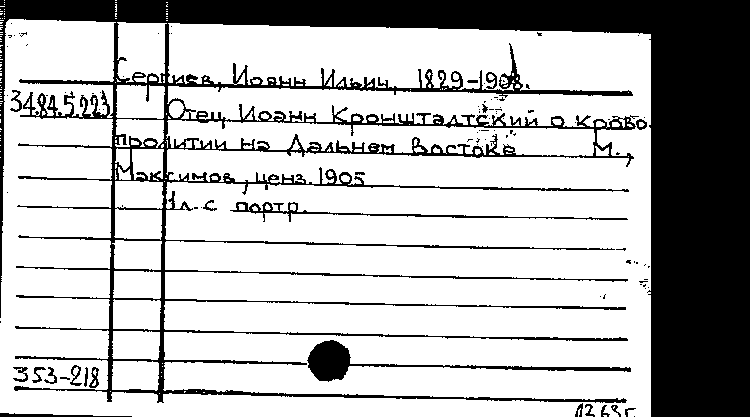 Сергиев, Иоанн Ильич, 1829-1908.
34.84.5.223
Отец Иоанн Кронштадтский о крово-
пролитии на Дальнем Востоке М.,
Максимов, ценз. 1905
1 л. с портр.
353-218
1263г.